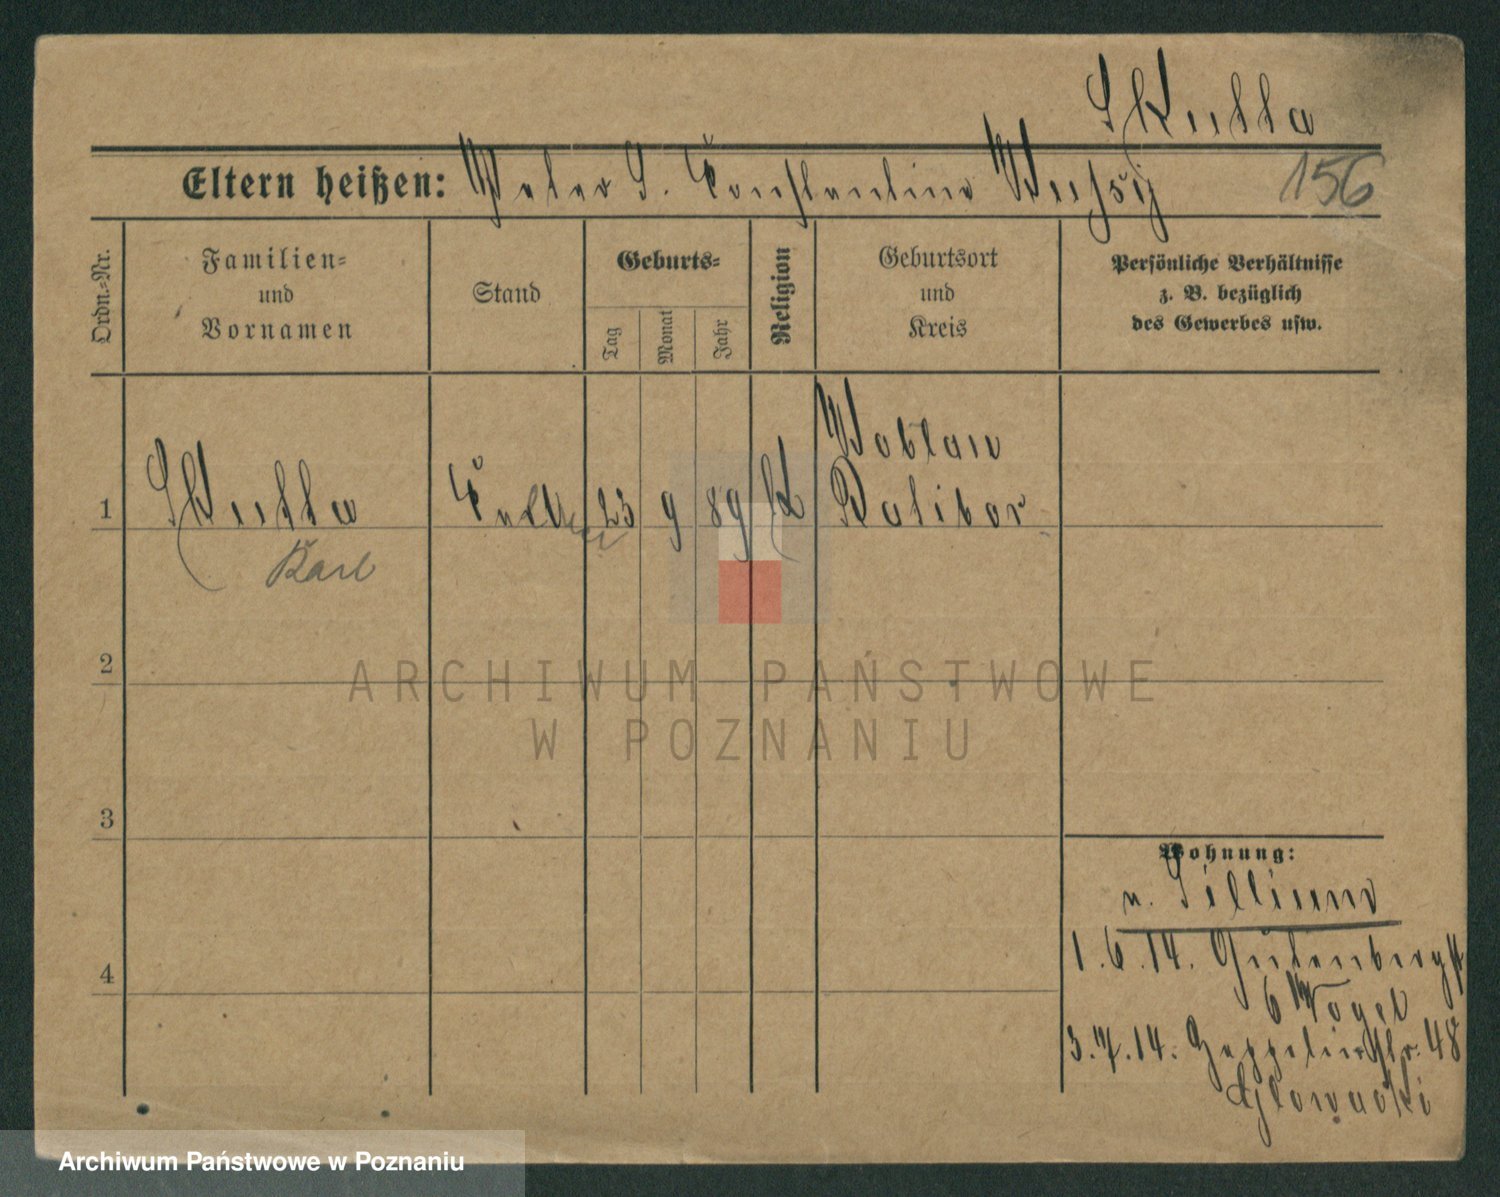 Skutta
Eltern heißen: Peter S. Constantine
156
Ordn.-Nr.
Familien-
und
Vornamen
Stand
Geburts-
Tag
Monat
Jahr
Religion
Geburtsort
und
Kreis
Persönliche Verhältnisse
z. B. bezüglich
des Gewerbes usw.
Woblau
1 Skutta 23 9 89 K Ratibor
Karl
2
ARCHIWUM PAŃSTWOWE
W POZNANIU
3
Wohnung:
n.
1.6.14. Gutenbergst
4
6 Vogel
3.7.14. Zeppelinstr. 48
Glowacki
Archiwum Państwowe w Poznaniu